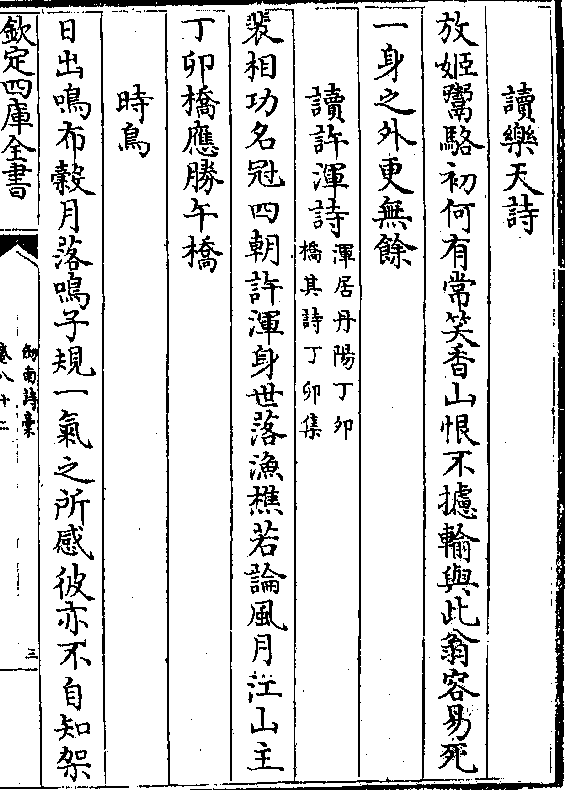 讀樂天詩
放姬鬻駱初何有常笑香山恨不攄輸與此翁容易死
一身之外更無餘
讀許渾詩
渾居丹陽丁卯
橋其詩丁卯集
裴相功名冠四朝許渾身世落漁樵若論風月江山主
丁卯橋應勝午橋
時鳥
日出鳴布穀月落鳴子規一氣之所感彼亦不自知架
欽定四庫全書
劍南詩稾
卷八十二
三